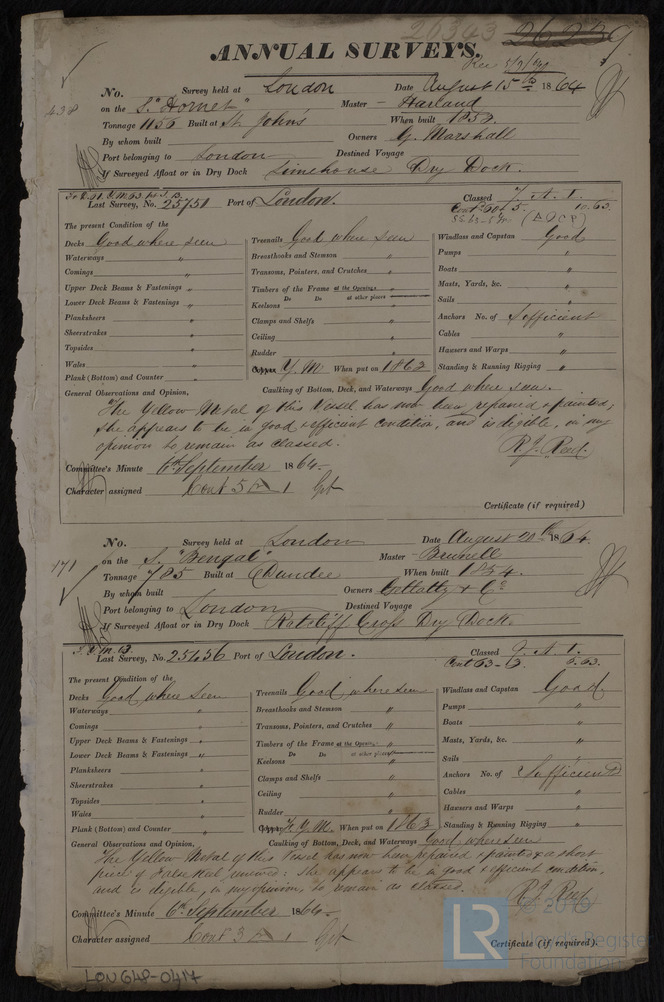 26343 26239
ANNUAL SURVEYS.
Rec 5/9/64
No. Survey held at London Date August 15th 1864
438 on the S. "Hornet" Master - Harland
Tonnage 1156 Built at St. Johns When built 185
By whom built Owners G. Marshall
Port belonging to London Destined Voyage
If Surveyed Afloat or in Dry Dock Limehouse Dry Dock.
Last Survey, No. 25751 Port of London. Classed
The present Condition of the
Decks Good where seen Treenails Good where seen Windlass and Capstan Good
Waterways " Breasthooks and Stemson " Pumps "
Comings " Transoms, Pointers, and Crutches " Boats "
Upper Deck Beams & Fastenings " Timbers of the Frame at the Openings " Masts, Yards, &c. "
Do Do at other places
Lower Deck Beams & Fastenings " Keelsons " Sails "
Planksheers " Clamps and Shelfs " Anchors No. of Sufficient
Sheerstrakes " Ceiling " Cables "
Topsides " Rudder " Hawsers and Warps "
Wales " Copper Y.M. When put on 1863 Standing & Running Rigging "
Plank (Bottom) and Counter " Caulking of Bottom, Deck, and Waterways Good where seen.
General Observations and Opinion,
The Yellow Metal of this Vessel has now been repaired & painted;
she appears to be in good & efficient condition, and is eligible, in my
opinion to remain as classed. R.J. Reed.
Committee's Minute 6th September 1864
Character assigned Cont 5 1
Certificate (if required)
No. Survey held at London Date August 20th 1864.
171 on the S. "Bengal" Master - Brunell
Tonnage 705 Built at Dundee When built 1854.
By whom built Owners Gellatly & Co
Port belonging to London Destined Voyage
If Surveyed Afloat or in Dry Dock Ratcliff Cross Dry Dock.
Last Survey, No. 25456 Port of London. Classed
Cont 63-
The present Condition of the
Decks Good where seen Treenails Good where seen Windlass and Capstan Good.
Waterways " Breasthooks and Stemson " Pumps "
Comings " Transoms, Pointers, and Crutches " Boats "
Upper Deck Beams & Fastenings " Timbers of the Frame at the Openings " Masts, Yards, &c. "
Do Do at other places
Lower Deck Beams & Fastenings " Keelsons " Sails "
Planksheers " Clamps and Shelfs " Anchors No. of Sufficient
Sheerstrakes " Ceiling " Cables "
Topsides " Rudder " Hawsers and Warps "
Wales " Copper Y.M. When put on 1863 Standing & Running Rigging "
Plank (Bottom) and Counter " Caulking of Bottom, Deck, and Waterways Good where seen
General Observations and Opinion,
The Yellow Metal of this Vessel has now been repaired & painted & a short
piece of False Keel renewed: she appears to be in good & efficient condition,
and is eligible, in my opinion, to remain as classed. R.J. Reed
Committee's Minute 6th September 1864
Character assigned Cont 3 1
Certificate (if required).
LON648-0417
LR
© 2019
Lloyd's Register
Foundation